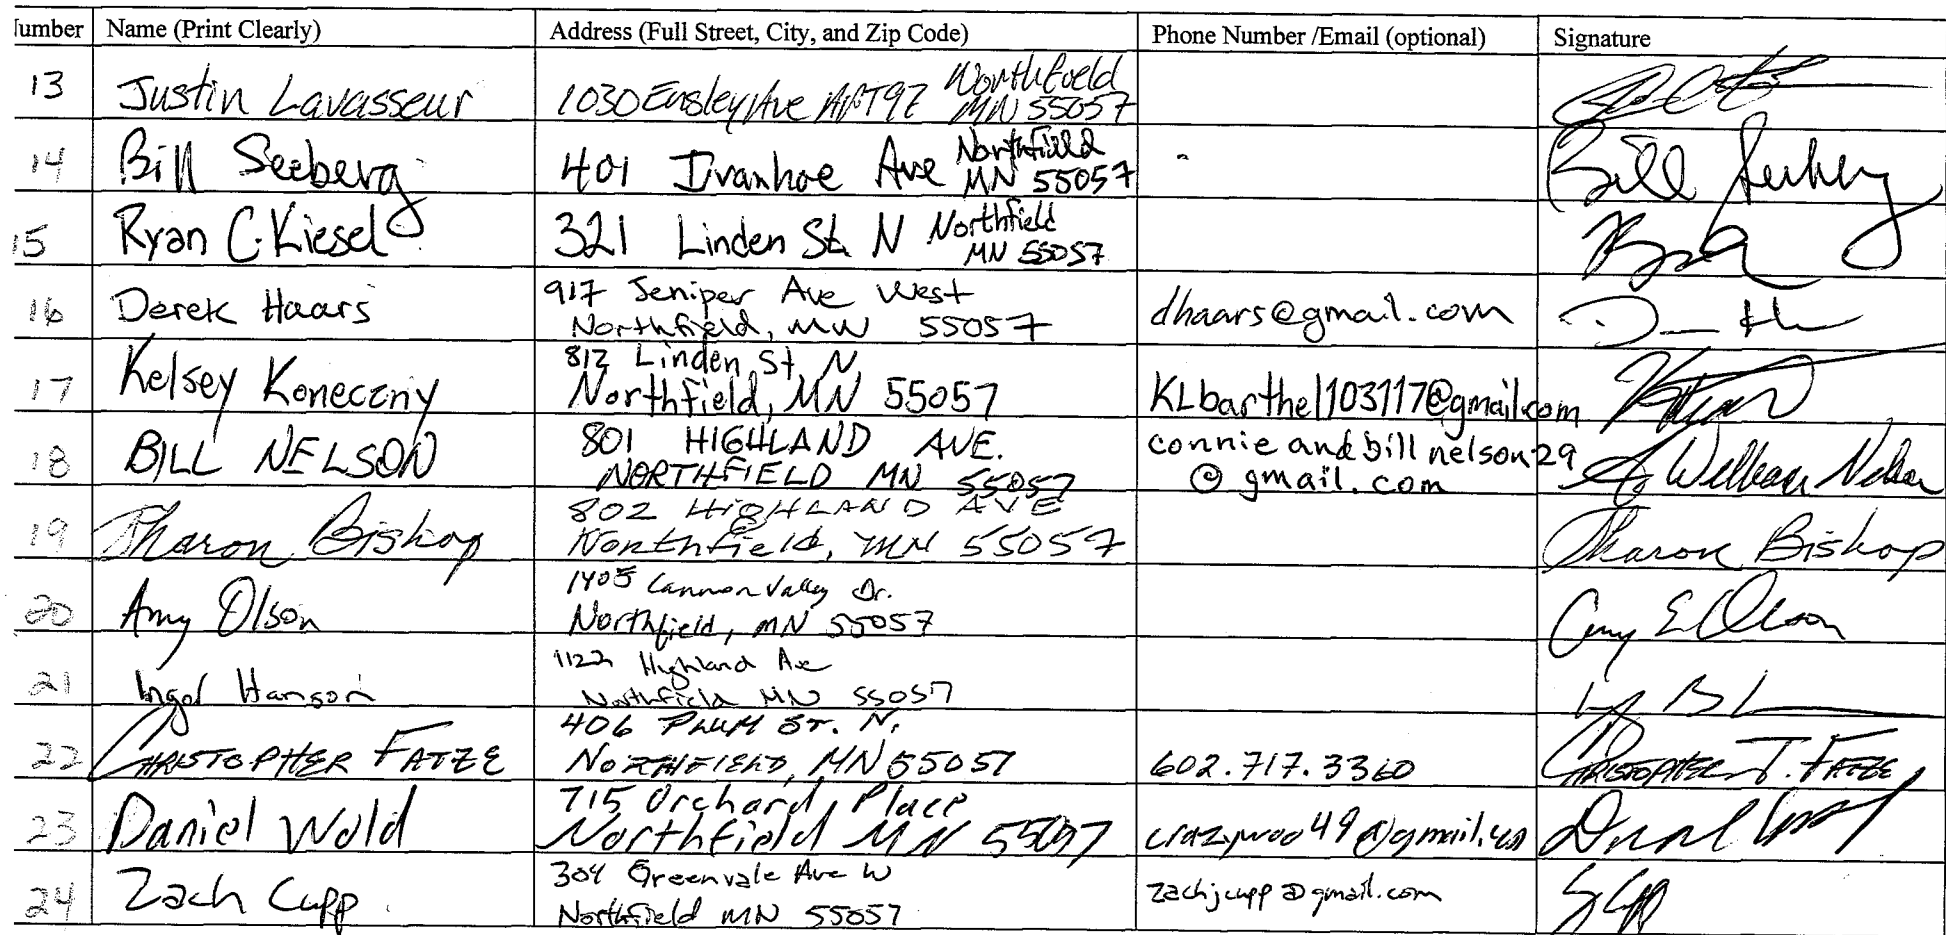 Number Name (Print Clearly) Address (Full Street, City, and Zip Code) Phone Number /Email (optional) Signature
13 Justin Lavasseur 1030 Ensley Ave APT 97 Northfield
MN 55057
14 Bill Seeberg 401 Ivanhoe Ave Northfield
MN 55057 Bill Seeberg
15 Ryan C. Kiesel 321 Linden St. N Northfield
MN 55057
16 Derek Haars 917 Jeniper Ave West
Northfield, MN 55057 dhaars@gmail.com
17 Kelsey Koneczny 812 Linden St N
Northfield, MN 55057 KLbarthel103117@gmail.com
18 BILL NELSON 801 HIGHLAND AVE.
NORTHFIELD MN 55057 connie and bill nelson29
@ gmail.com William Nelson
19 Sharon Bishop 802 HIGHLAND AVE
Northfield, MN 55057 Sharon Bishop
20 Amy Olson 1405 Cannon Valley Dr.
Northfield, MN 55057 Amy E Olson
21 Hanson 1122 Highland Ave
Northfield MN 55057
22 CHRISTOPHER FATZE 406 PLUM ST. N.
NORTHFIELD, MN 55057 602.717.3360 CHRISTOPHER T. FATZE
23 Daniel Wold 715 Orchard Place
Northfield MN 55057 crazywoo49@gmail.com
24 Zach Cupp 304 Greenvale Ave W
Northfield MN 55057 zachjcupp@gmail.com